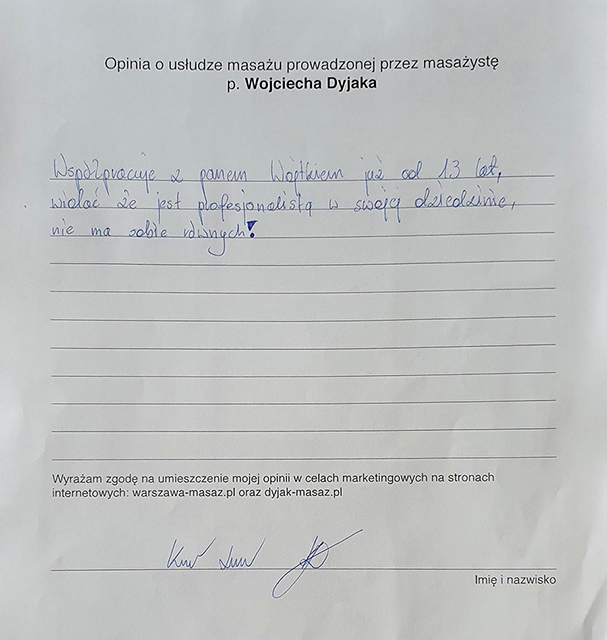 Opinia o usłudze masażu prowadzonej przez masażystę
p. Wojciecha Dyjaka
Współpracuje z panem Wojtkiem już od 13 lat,
widać że jest profesjonalistą w swojej dziedzinie,
nie ma sobie równych!
Wyrażam zgodę na umieszczenie mojej opinii w celach marketingowych na stronach
internetowych: warszawa-masaz.pl oraz dyjak-masaz.pl
Imię i nazwisko